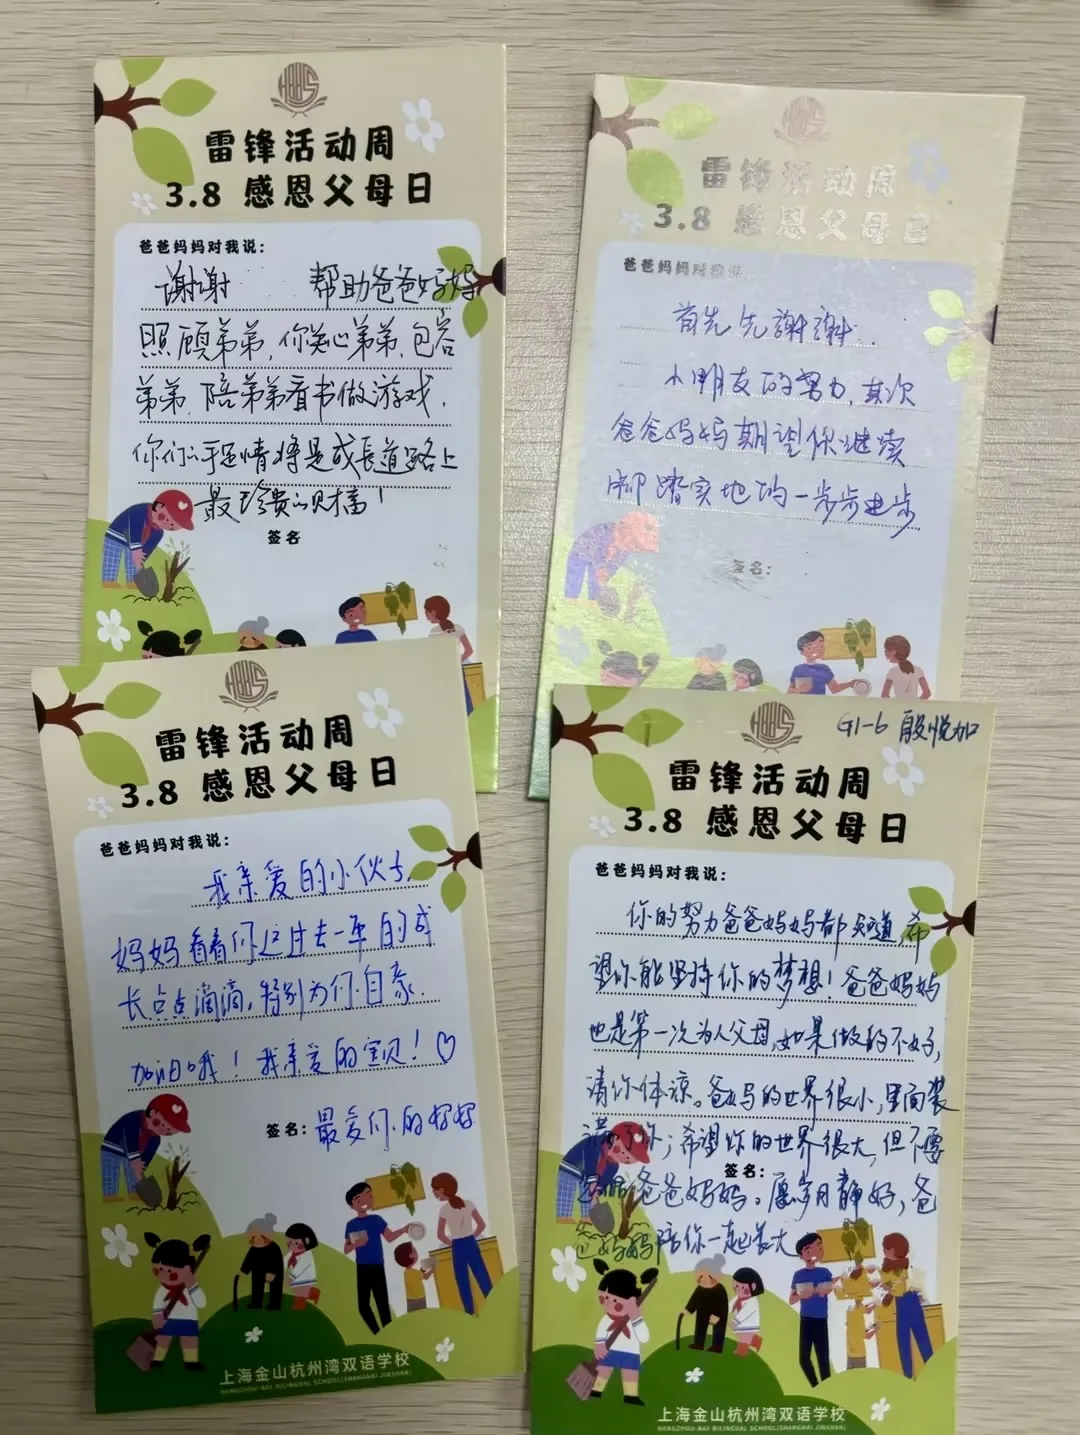 雷锋活动周
3.8 感恩父母日
爸爸妈妈对我说：
谢谢 帮助爸爸妈妈
照顾弟弟，你关心弟弟、包容
弟弟、陪弟弟看书做游戏，
你们的手足情将是成长道路上
最珍贵的财富！
签名
雷锋活动周
3.8 感恩父母日
爸爸妈妈对我说
首先先謝謝
小朋友的努力，其次
爸爸妈妈期望你继续
脚踏实地的一步步进步
签名：
雷锋活动周
3.8 感恩父母日
爸爸妈妈对我说：
我亲爱的小伙子，
妈妈看着你这过去一年的成
长点点滴滴，特别为你自豪。
加油哦！我亲爱的宝贝！♡
签名：最爱你的妈妈
上海金山杭州湾双语学校
HANGZHOU BAY BILINGUAL SCHOOL(SHANGHAI JINSHAN)
G1-6 殷悦加
雷锋活动周
3.8 感恩父母日
爸爸妈妈对我说：
你的努力爸爸妈妈都知道，希
望你能坚持你的梦想！爸爸妈妈
也是第一次为人父母，如果做的不好，
请你体谅。爸妈的世界很小，里面装
满了你；希望你的世界很大，但不要
忘醒爸爸妈妈。愿岁月静好，爸
签名：
爸妈妈陪你一起长大
上海金山杭州湾双语学校
HANGZHOU BAY BILINGUAL SCHOOL(SHANGHAI JINSHAN)